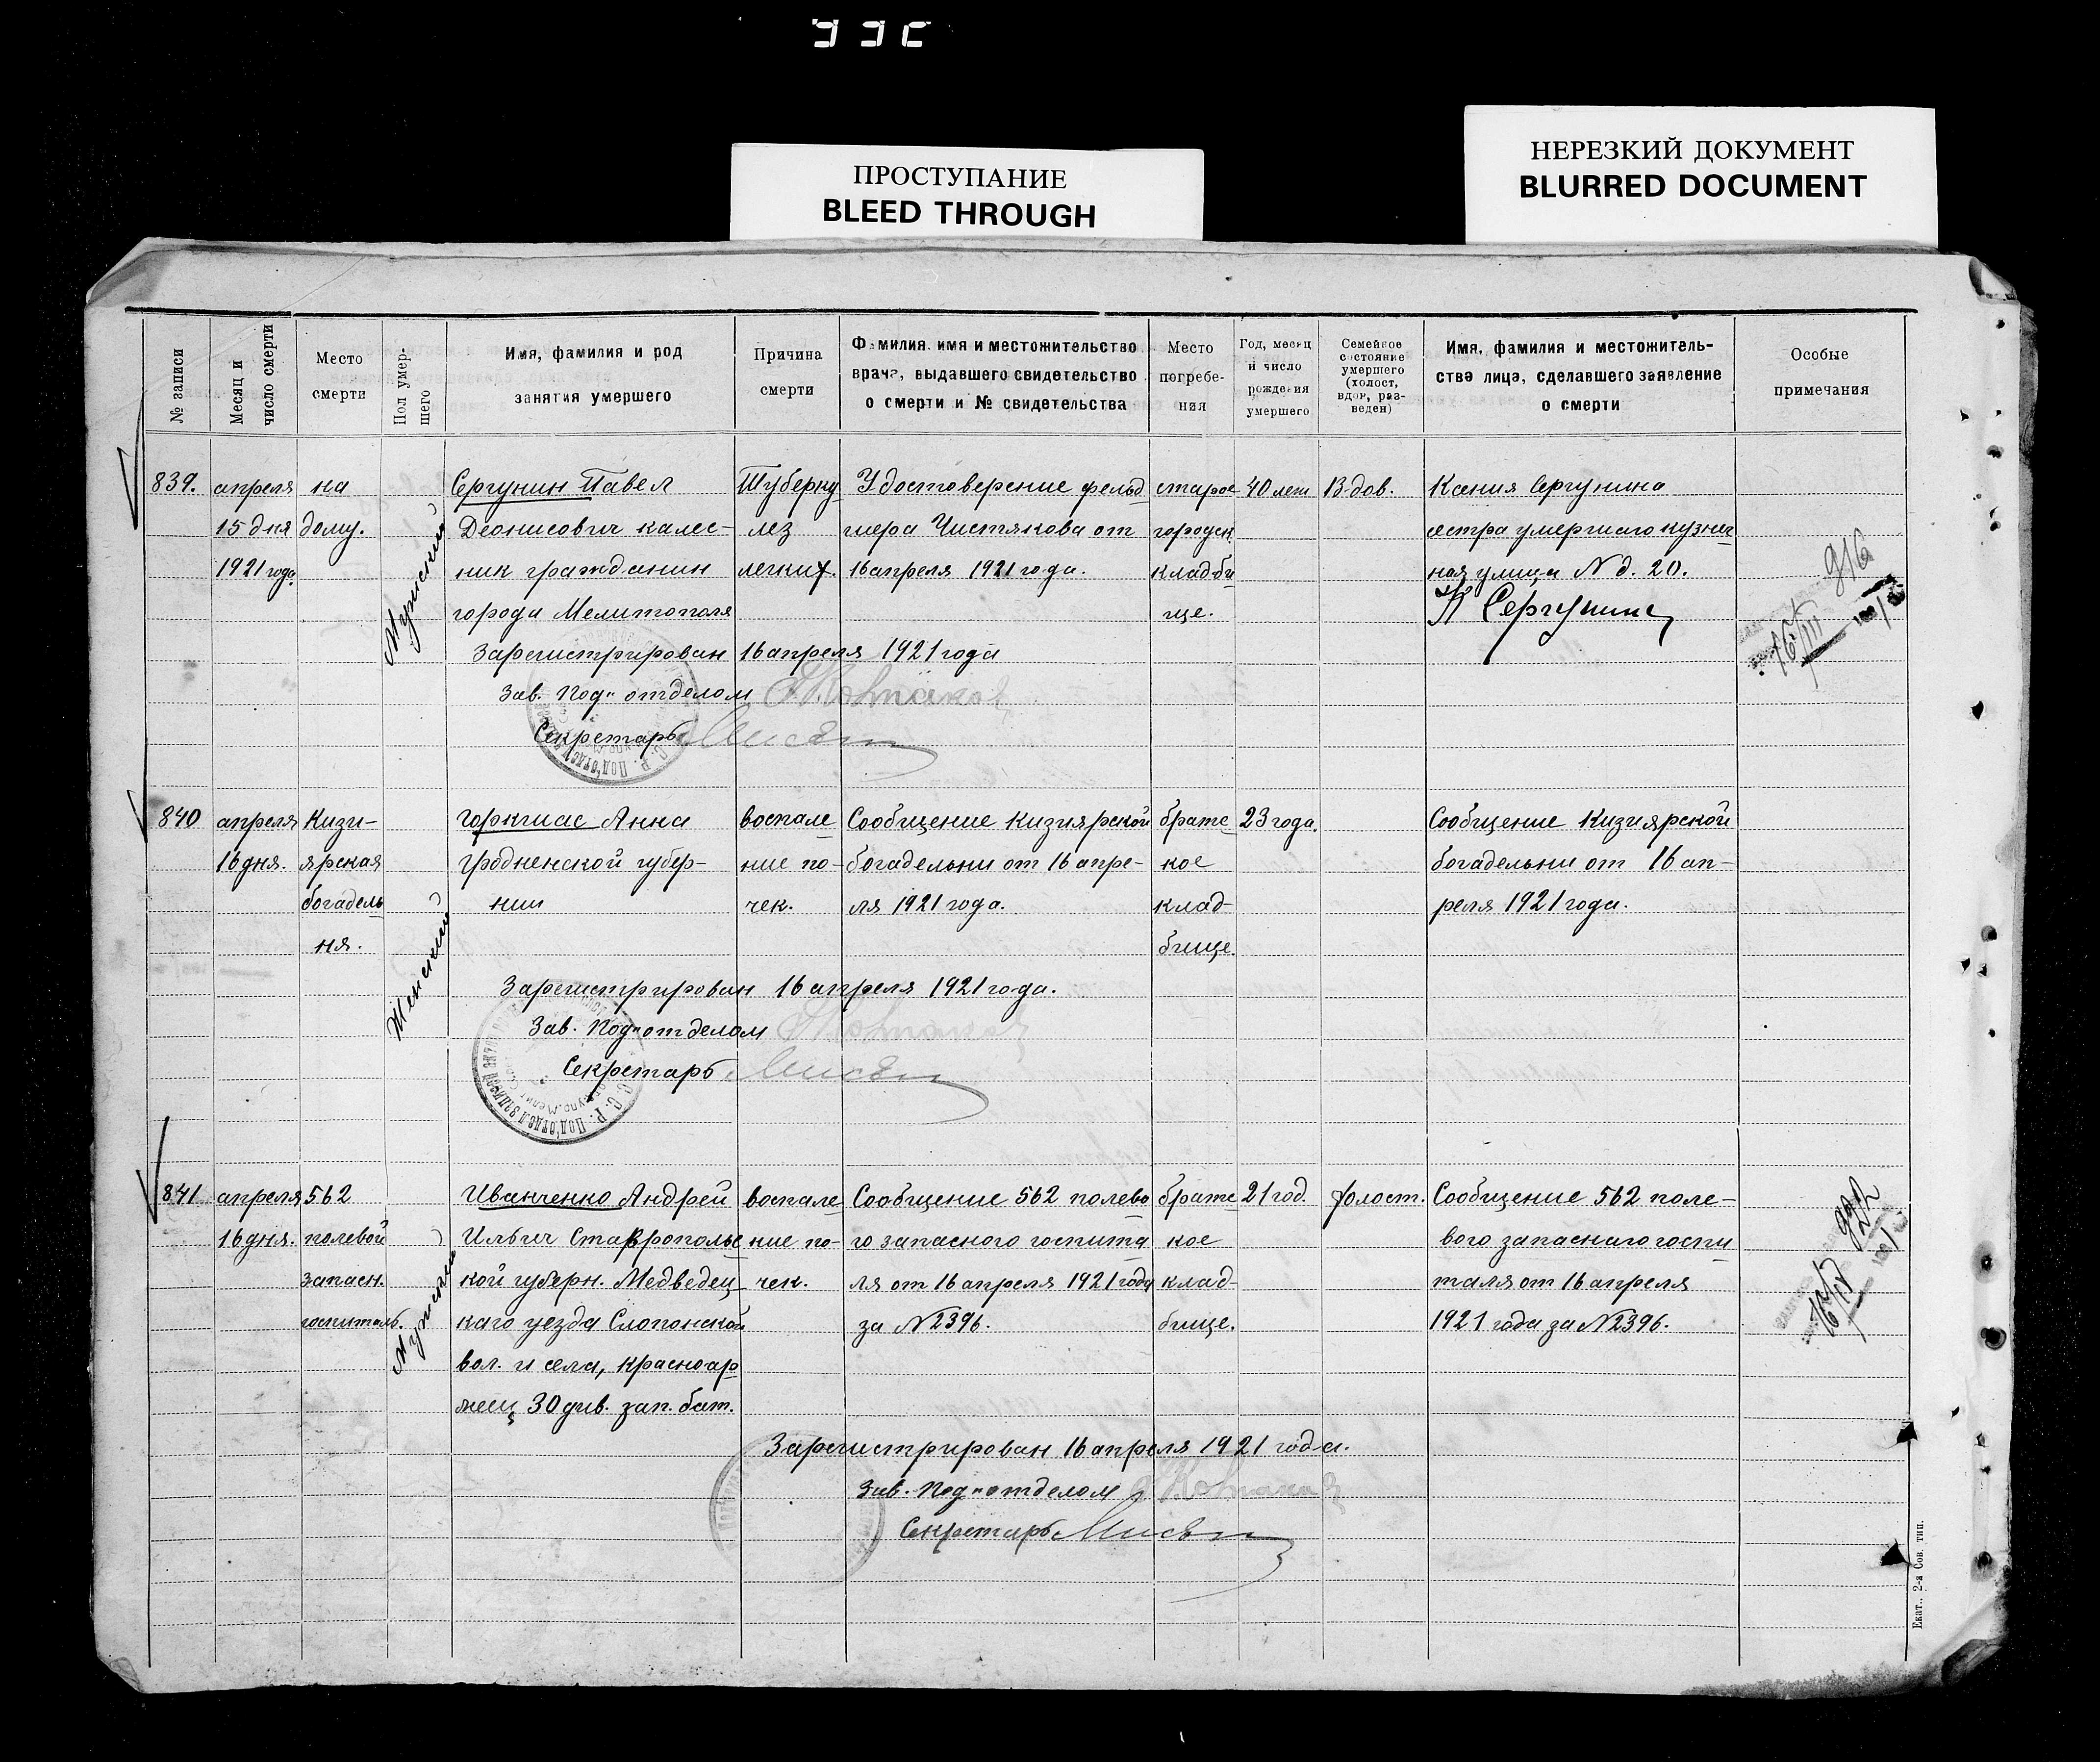 ПРОСТУПАНИЕ
BLEED THROUGH
НЕРЕЗКИЙ ДОКУМЕНТ
BLURRED DOCUMENT
№ записи
Месяц и
число смерти
Место
смерти
Пол умер-
шего
Имя, фамилия и род
занятия умершего
Причина
смерти
Фамилия имя и местожительство
врача, выдавшего свидетельство
о смерти и № свидетельства
Место
погребе-
ния
Год, месяц
и число
рождения
умершего
Семейное
состояние
умершего
(холост,
вдов, раз-
веден)
Имя, фамилия и местожитель-
ства лица, сделавшего заявление
о смерти
Особые
примечания
839.
апреля
15 дня
1921 года
на
дому.
Мужской
Сергунин Павел
Деонисович калес-
ник гражданин
города Мелитополя
Туберку
лез
легких.
Удостоверение фельд
шера Чистякова от
16 апреля 1921 года.
старое
городск.
кладби
ще.
40 лет
Вдов.
Ксения Сергунина
сестра умершаго кузнеч
ная улица № д. 20.
К Сергунина
916
Зарегистрирован 16 апреля 1921 года
Зав. Под"отделом
Секретарь
840
апреля
16 дня.
Кизи-
ярская
богадель
ня.
Женский
Горкгиас Анна
Гродненской губер-
нии
воспале
ние по-
чек.
Сообщение Кизиярской
богадельни от 16 апре-
ля 1921 года.
братс
кое
клад-
бище.
23 года.
Сообщение Кизиярской
богадельни от 16 ап-
реля 1921 года.
Зарегистрирован 16 апреля 1921 года.
Зав. Под"отделом
Секретарь
841
апреля
16 дня.
562
полевой
запасн.
госпиталь.
Мужской
Иванченко Андрей
Ильич Ставропольс
кой губерн. Медведец
каго уезда Слопонской
вол. и села, красноар
меец 30 див. зап. бат.
воспале
ние по-
чек.
Сообщение 562 полево
го запасного госпита
ля от 16 апреля 1921 года
за №2396.
братс
кое
клад-
бище.
21 год.
холост.
Сообщение 562 поле-
вого запаснаго госпи
таля от 16 апреля
1921 года за №2396.
922
Зарегистрирован 16 апреля 1921 года.
Зав. Под"отделом
Секретарь
Екат., 2-я Сов. тип.